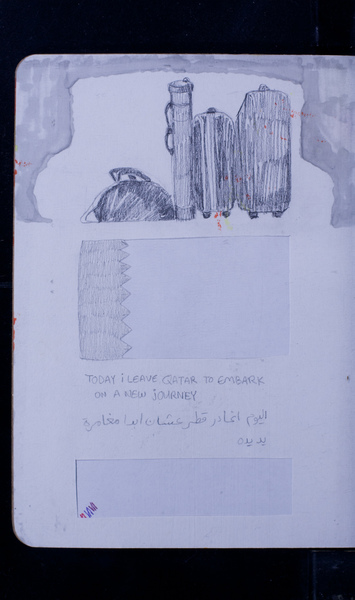 TODAY i LEAVE QATAR TO EMBARK
ON A NEW JOURNEY
اليوم اغادر قطر عشان ابدا مغامرة
يديده